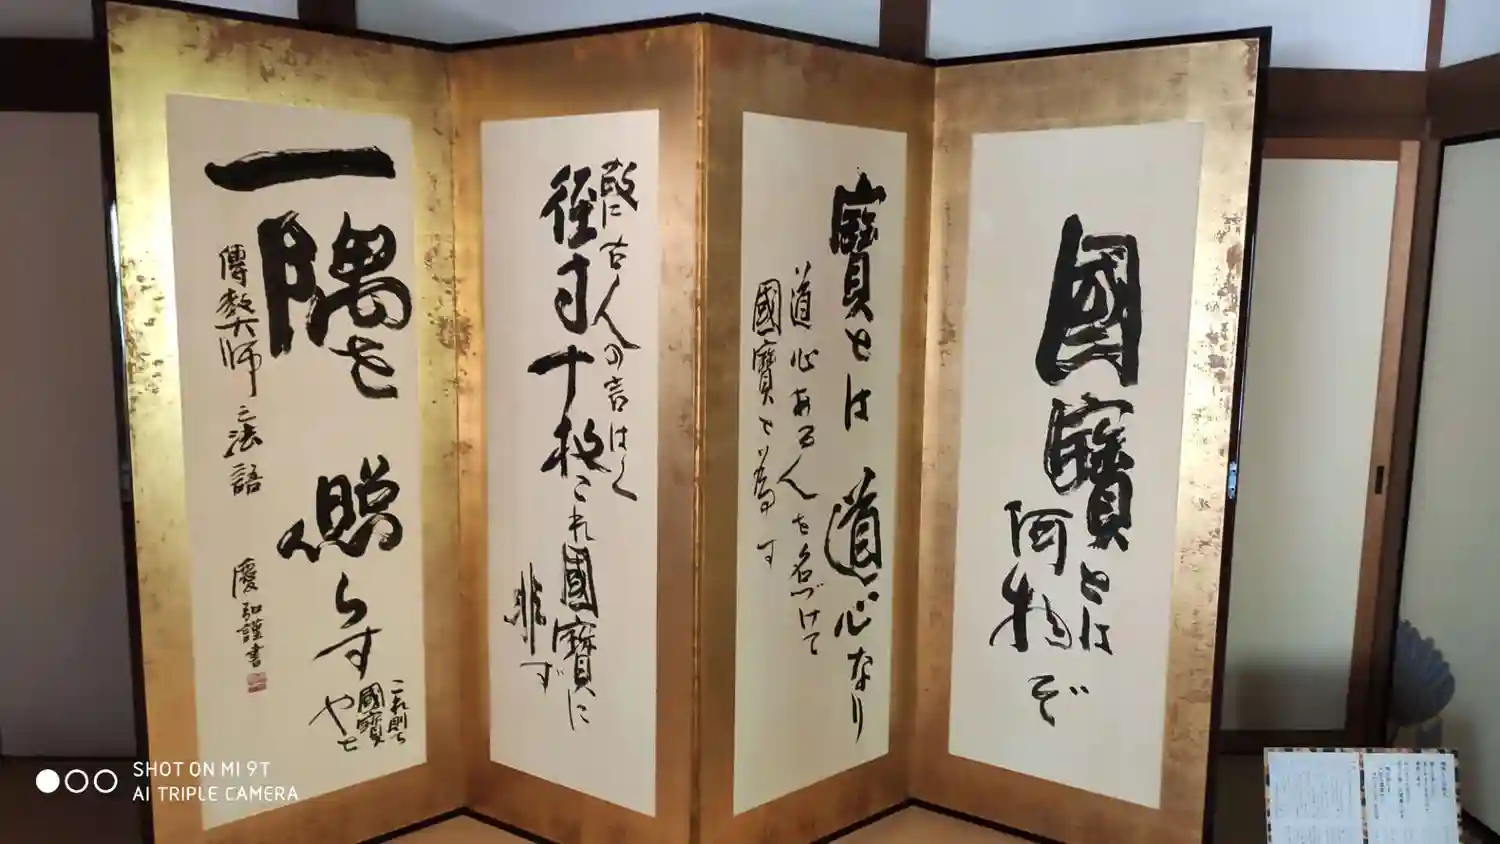 國寶とは
何物ぞ
寶とは道心なり
道心ある人を名づけて
國寶と為す
故に古人の言はく
径寸十枚これ國寶に
非ず
一隅を照らす
これ則ち
國寶
なりと
傳教大師之法語
慶弘謹書
SHOT ON MI 9T
AI TRIPLE CAMERA